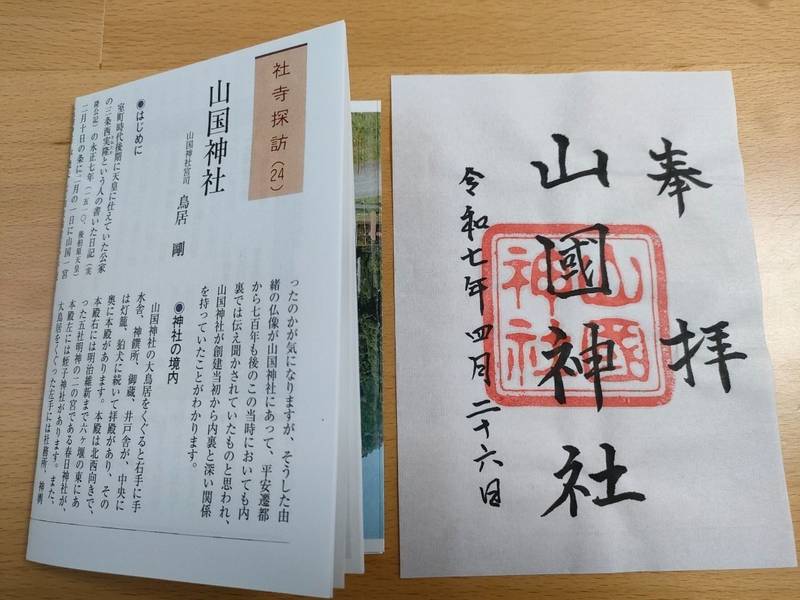 社寺探訪(24)
山国神社
山国神社宮司 鳥居 剛
●はじめに
室町時代後期に天皇に仕えていた公家
の三条西実隆という人の書いた日記(実
隆公記)の永正七年(一五一〇、後柏原天皇)
二月十日の条に二月の一日に山国一宮
ったのかが気になりますが、そうした由
緒の仏像が山国神社にあって、平安遷都
から七百年も後のこの当時においても内
裏では伝え聞かされていたものと思われ、
山国神社が創建当初から内裏と深い関係
を持っていたことがわかります。
●神社の境内
山国神社の大鳥居をくぐると右手に手
水舎、神饌所、御蔵、井戸舎が、中央に
は灯籠、狛犬に続いて拝殿があり、その
奥に本殿があります。本殿は北西向きで、
本殿右には明治維新まで六ヶ堰の東にあ
った五社明神の二の宮である春日神社が、
本殿左には蛭子神社があります。また、
大鳥居をくぐった左手には社務所、神輿
奉拝
山國神社
山國神社
令和七年四月二十六日